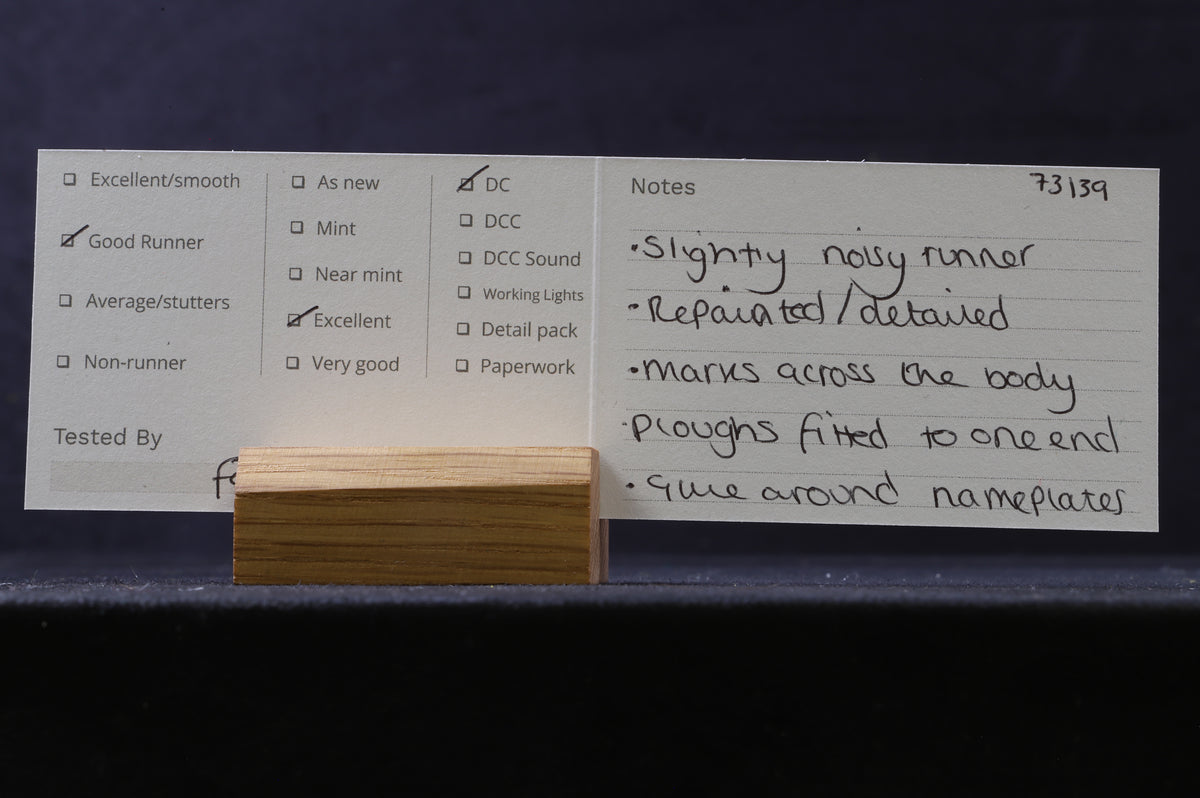 Excellent/smooth
Good Runner
Average/stutters
Non-runner
Tested By
As new
Mint
Near mint
Excellent
Very good
DC
DCC
DCC Sound
Working Lights
Detail pack
Paperwork
Notes
73139
• Slightly noisy runner
• Repainted/detailed
• marks across the body
• Ploughs fitted to one end
• Glue around nameplates